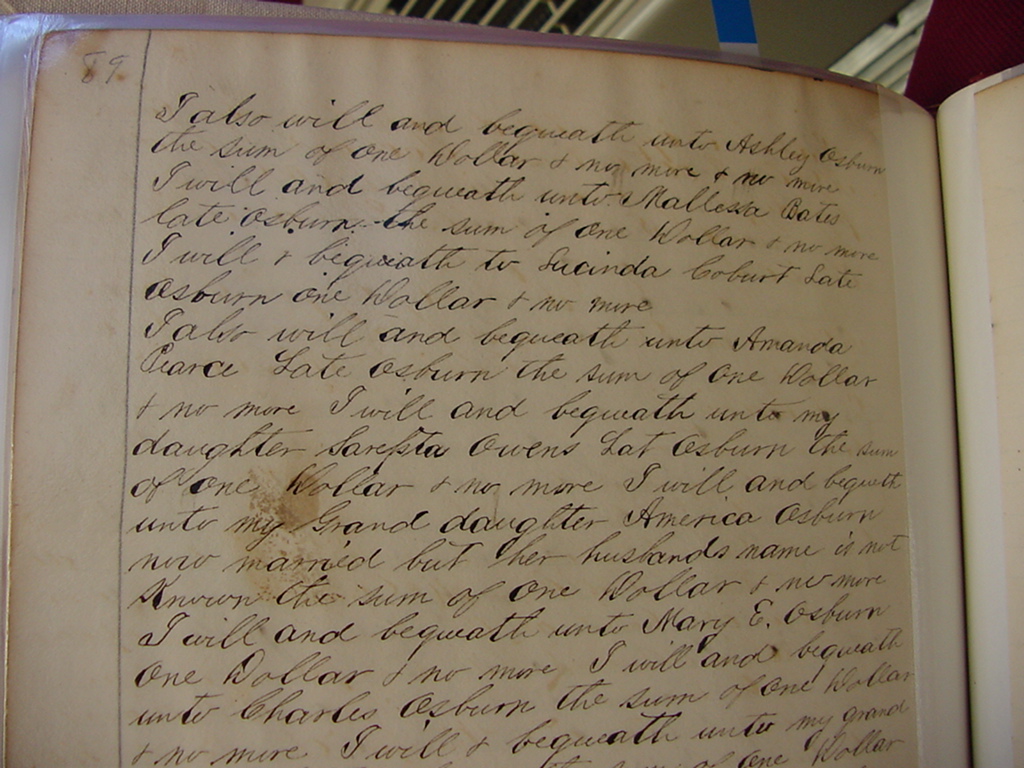 89
I also will and bequeath unto Ashley Osburn
the sum of one Dollar & no more & no more
I will and bequeath unto Malissa Bates
late Osburn the sum of one Dollar & no more
I will & bequeath to Lucinda Coburt Late
Osburn one Dollar & no more
I also will and bequeath unto Amanda
Vance Late Osburn the sum of one Dollar
& no more I will and bequeath unto my
daughter Owens Lat Osburn the sum
of one Dollar & no more I will and bequeth
unto my Grand daughter America Osburn
now married but her husbands name is not
known the sum of one Dollar & no more
I will and bequeath unto Mary E. Osburn
one Dollar & no more I will and bequeath
unto Charles Osburn the sum of one Dollar
& no more I will & bequeath unto my Grand
of one Dollar